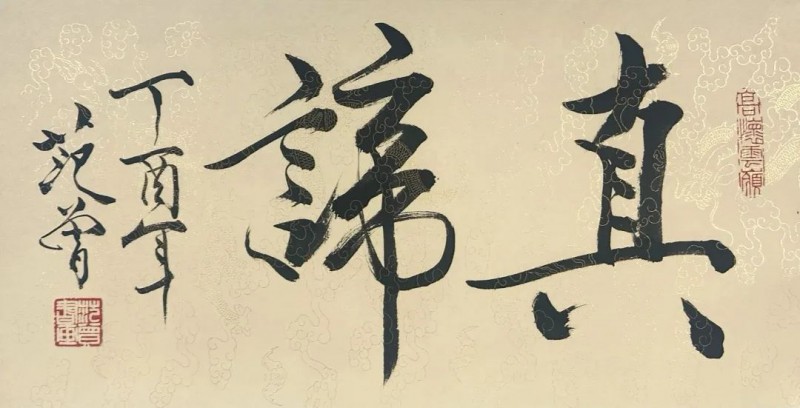 真諦
丁酉年
范曾